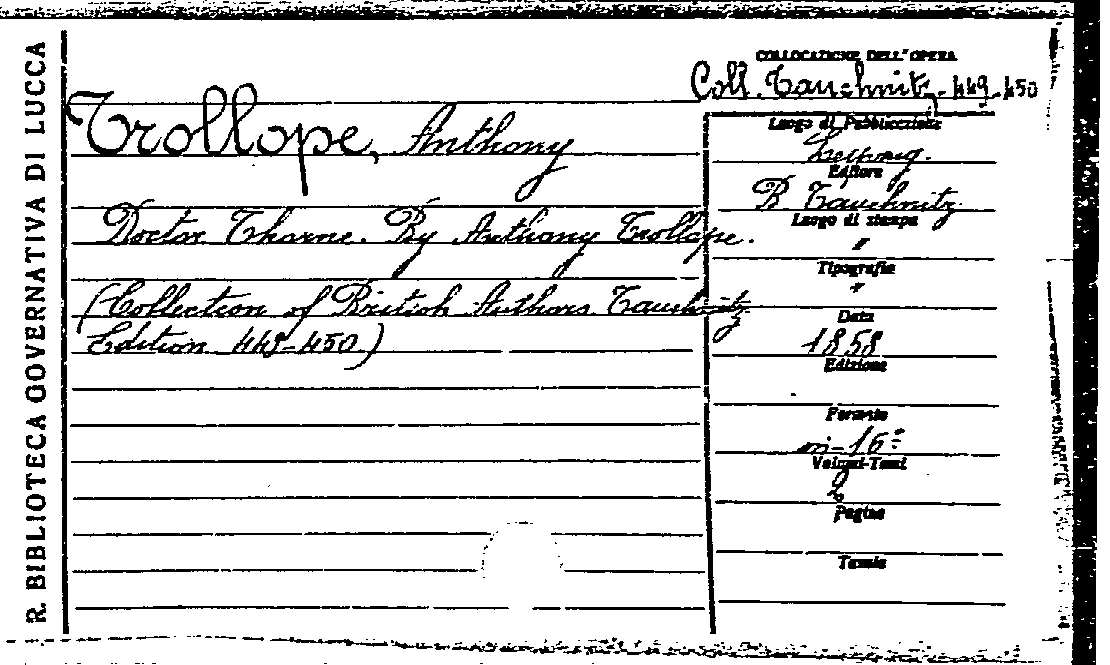 R. BIBLIOTECA GOVERNATIVA DI LUCCA
COLLOCAZIONE DELL'OPERA
Coll. Tauchnitz - 449-450
Trollope, Anthony
Doctor Thorne. By Anthony Trollope.
(Collection of British Authors Tauchnitz
Edition 449-450)
Luogo di Pubblicazione
Leipzig.
Editore
B. Tauchnitz
Luogo di stampa
"
Tipografia
"
Data
1858
Edizione
Formato
in-16º
Volumi-Tomi
2
Pagine
Tavole